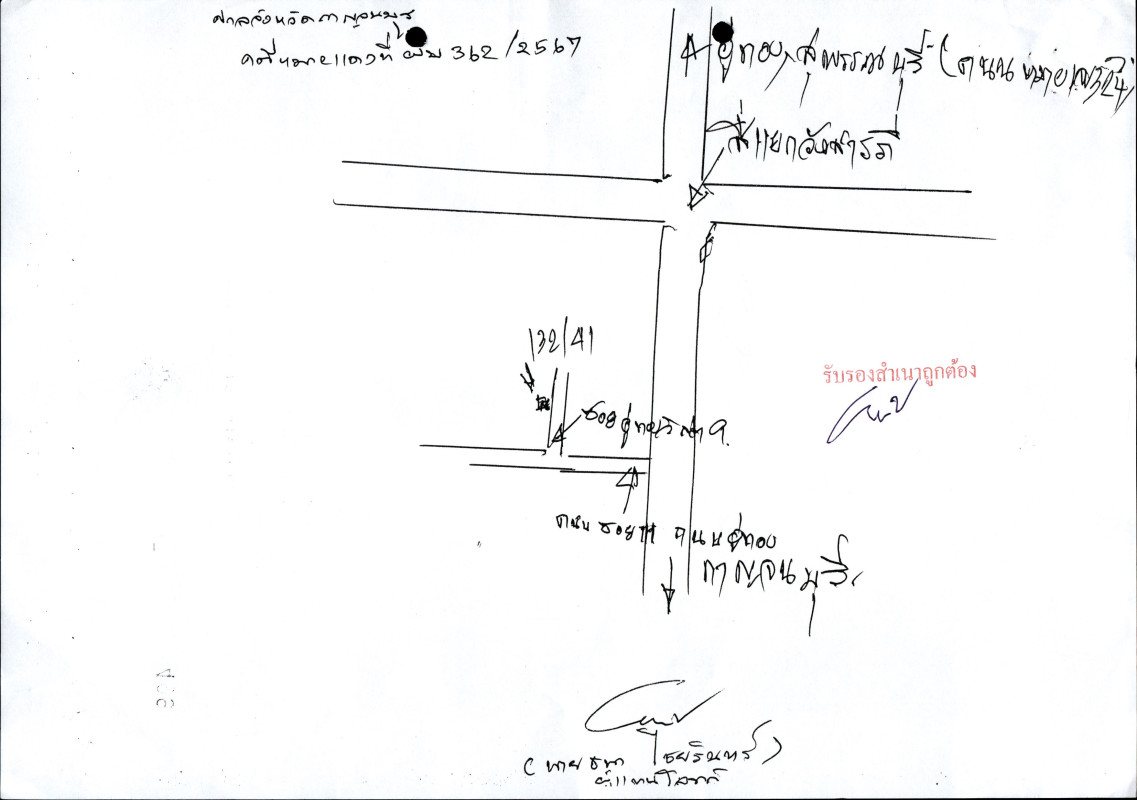 ศาลจังหวัดกาญจนบุรี
คดีหมายเลขแดงที่ ผบ 362/2567
อู่ทอง, สุพรรณบุรี (ถนนหมายเลข 324)
สี่แยกวังสารภี
132/41
ซอย
รับรองสำเนาถูกต้อง
ถนน ซอย ถนนอู่ทอง
กาญจนบุรี
(นาย
ผู้แทนโจทก์